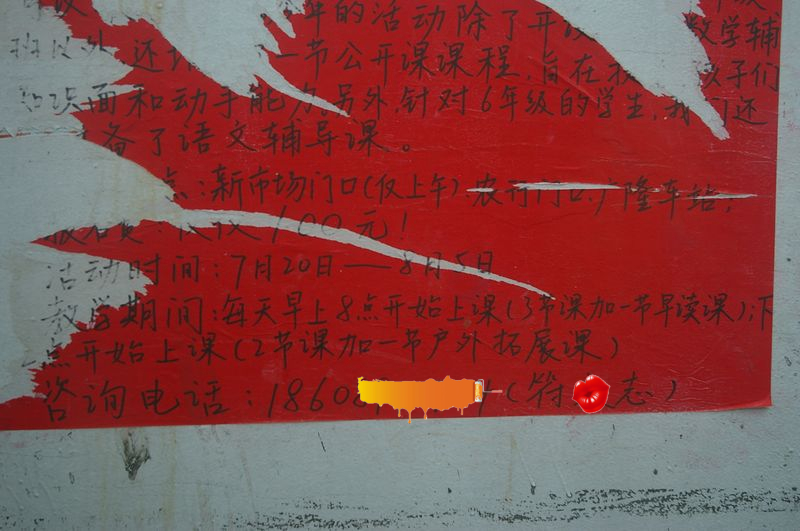 年的活动除了开设 数学辅
班以外,还 一节公开课课程,旨在 孩子们
知识面和动手能力。另外,针对6年级的学生,我们还
备了语文辅导课。
点:新市场门口(仅上午)、农行门口、广隆车站;
报名费:仅仅100元!
活动时间:7月20日——8月5日
教学期间:每天早上8点开始上课(3节课加一节早读课);下
点开始上课(2节课加一节户外拓展课)
咨询电话:1860 (符 志)